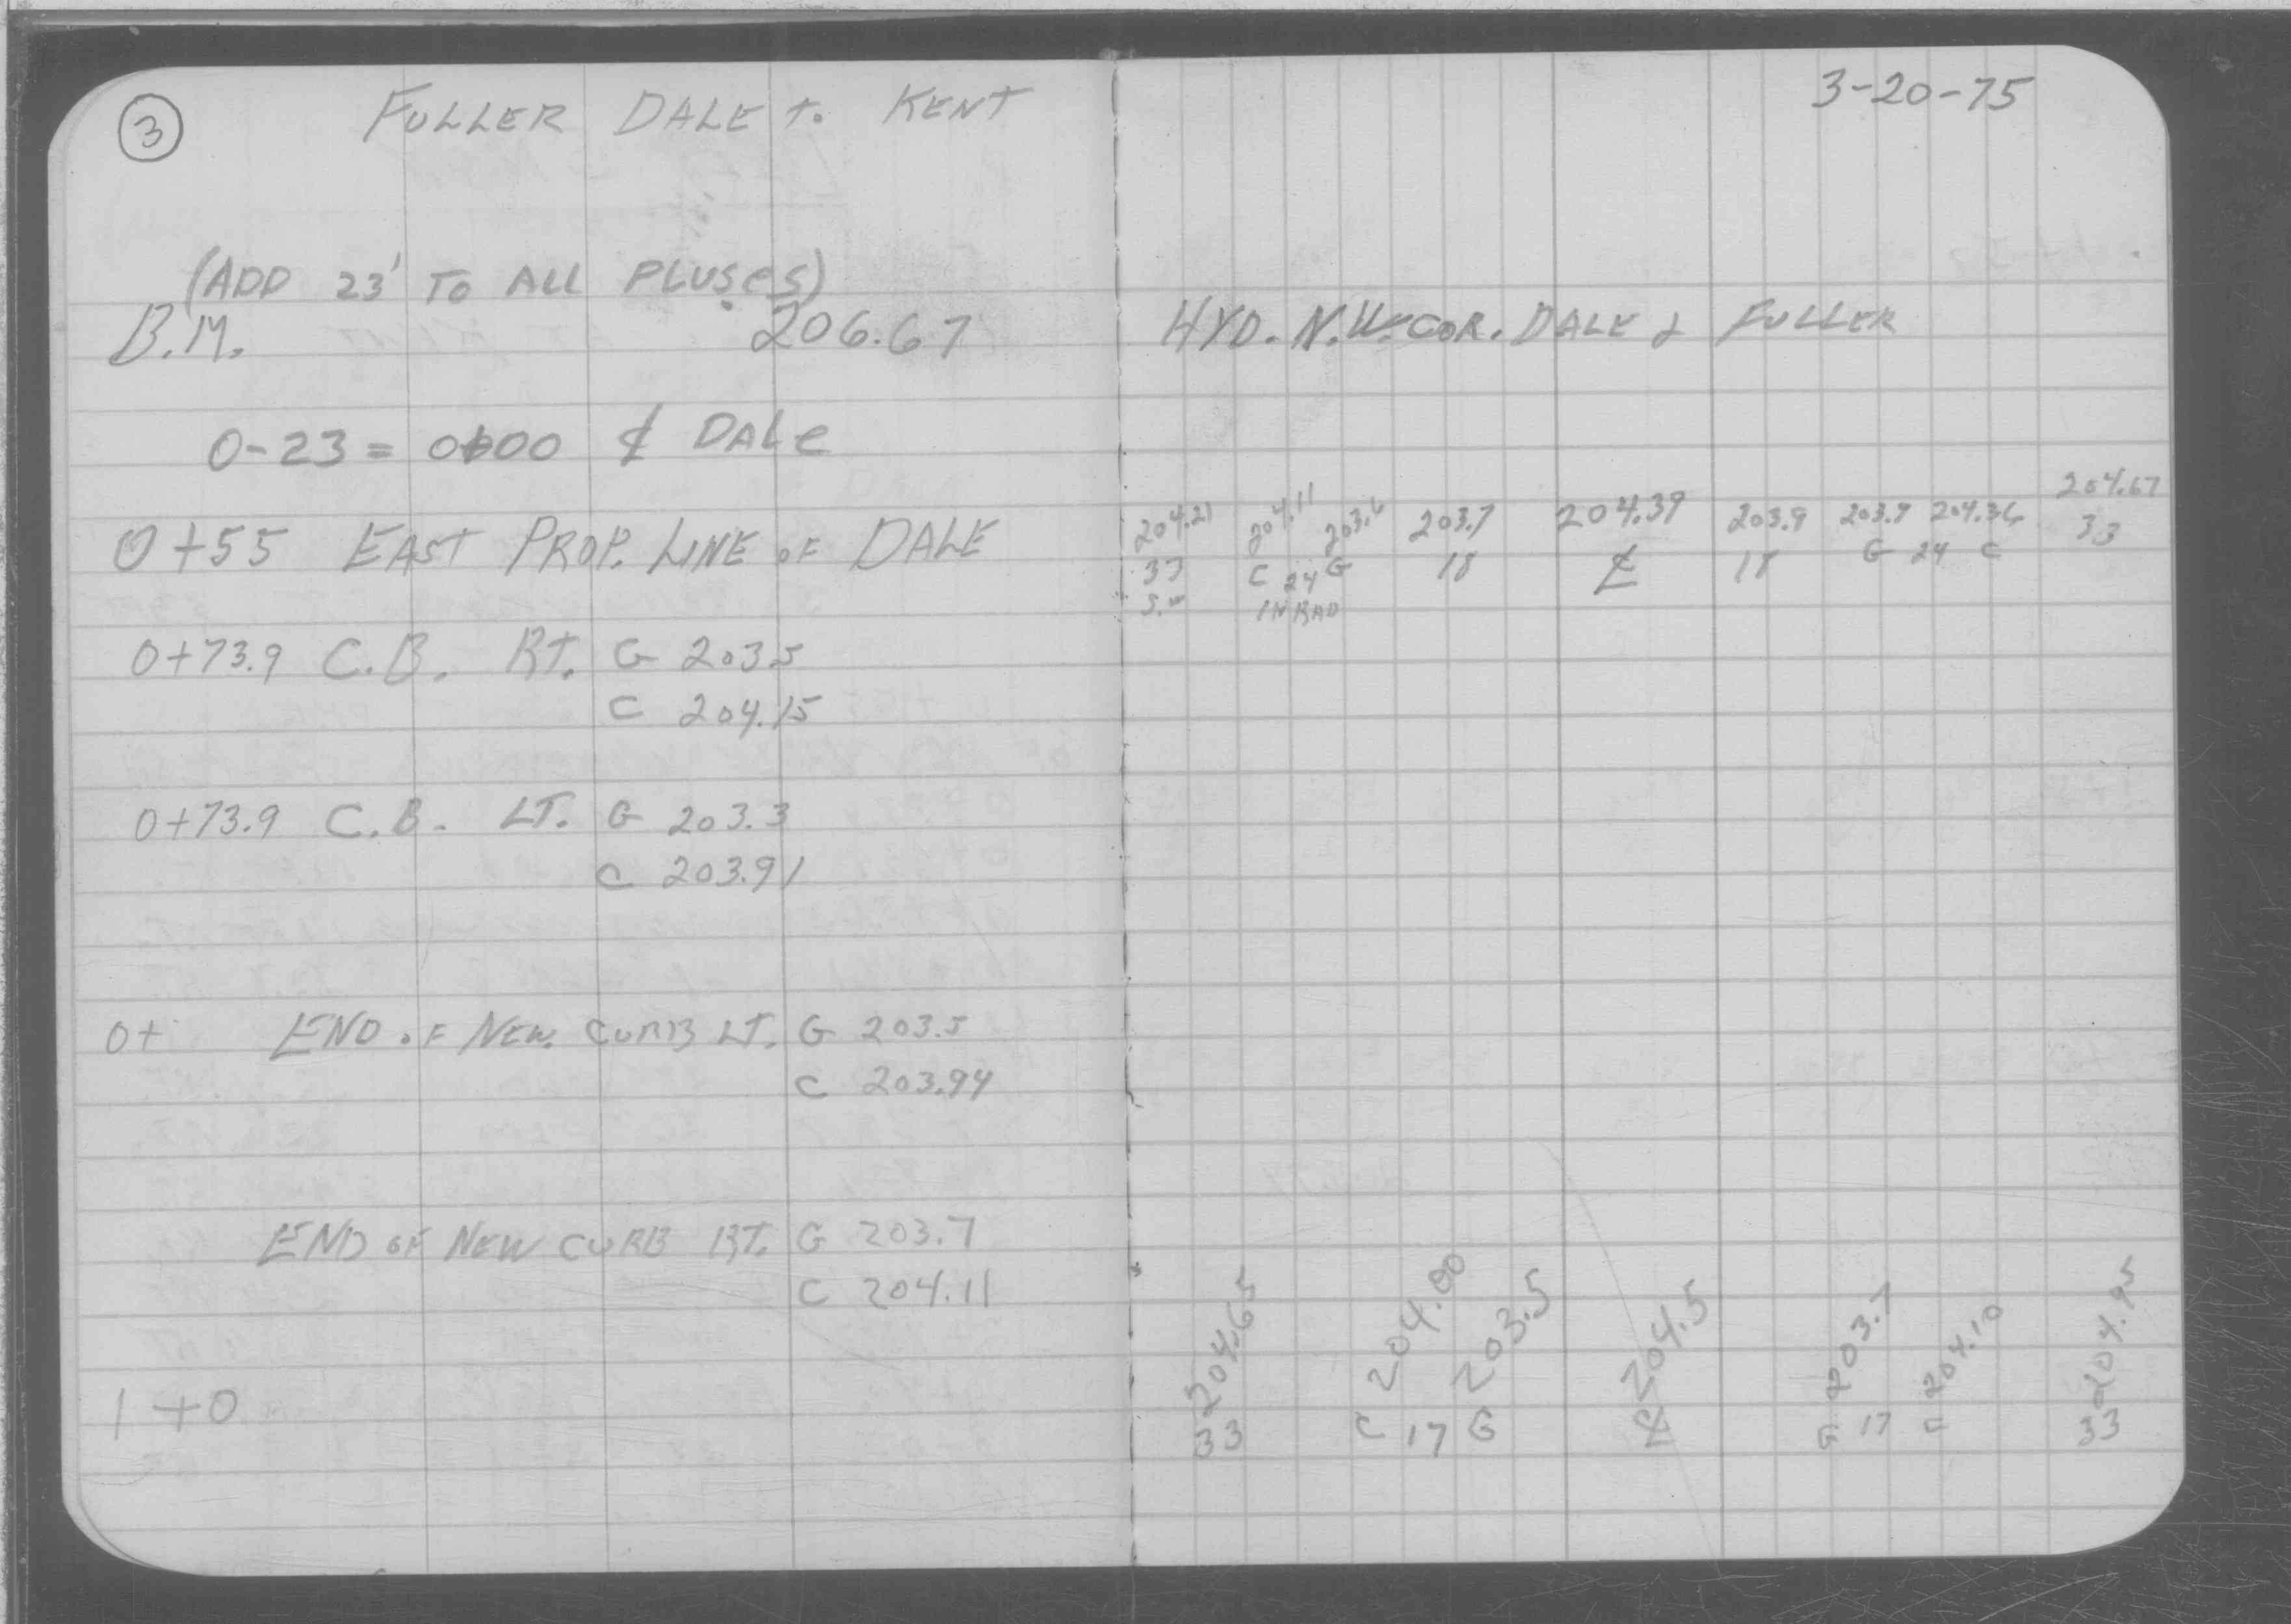 3
FULLER DALE to KENT
3-20-75
(ADD 23' TO ALL PLUSES)
B.M. 206.67 HYD. N.W. COR. DALE & FULLER
0-23 = 0+00 ℄ DALE
204.21 204.11 203.6 203.7 204.39 203.9 203.9 204.36 204.67
0+55 EAST PROP. LINE OF DALE 33 C 24 G 18 ℄ 18 G 24 C 33
IN RAD
0+73.9 C.B. RT. G 203.5
C 204.15
0+73.9 C.B. LT. G 203.3
C 203.91
0+ END OF NEW CURB LT. G 203.5
C 203.94
END OF NEW CURB RT. G 203.7
C 204.11
204.65 204.00 203.5 204.5 203.7 204.10 204.95
1+0 33 C 17 G ℄ G 17 C 33